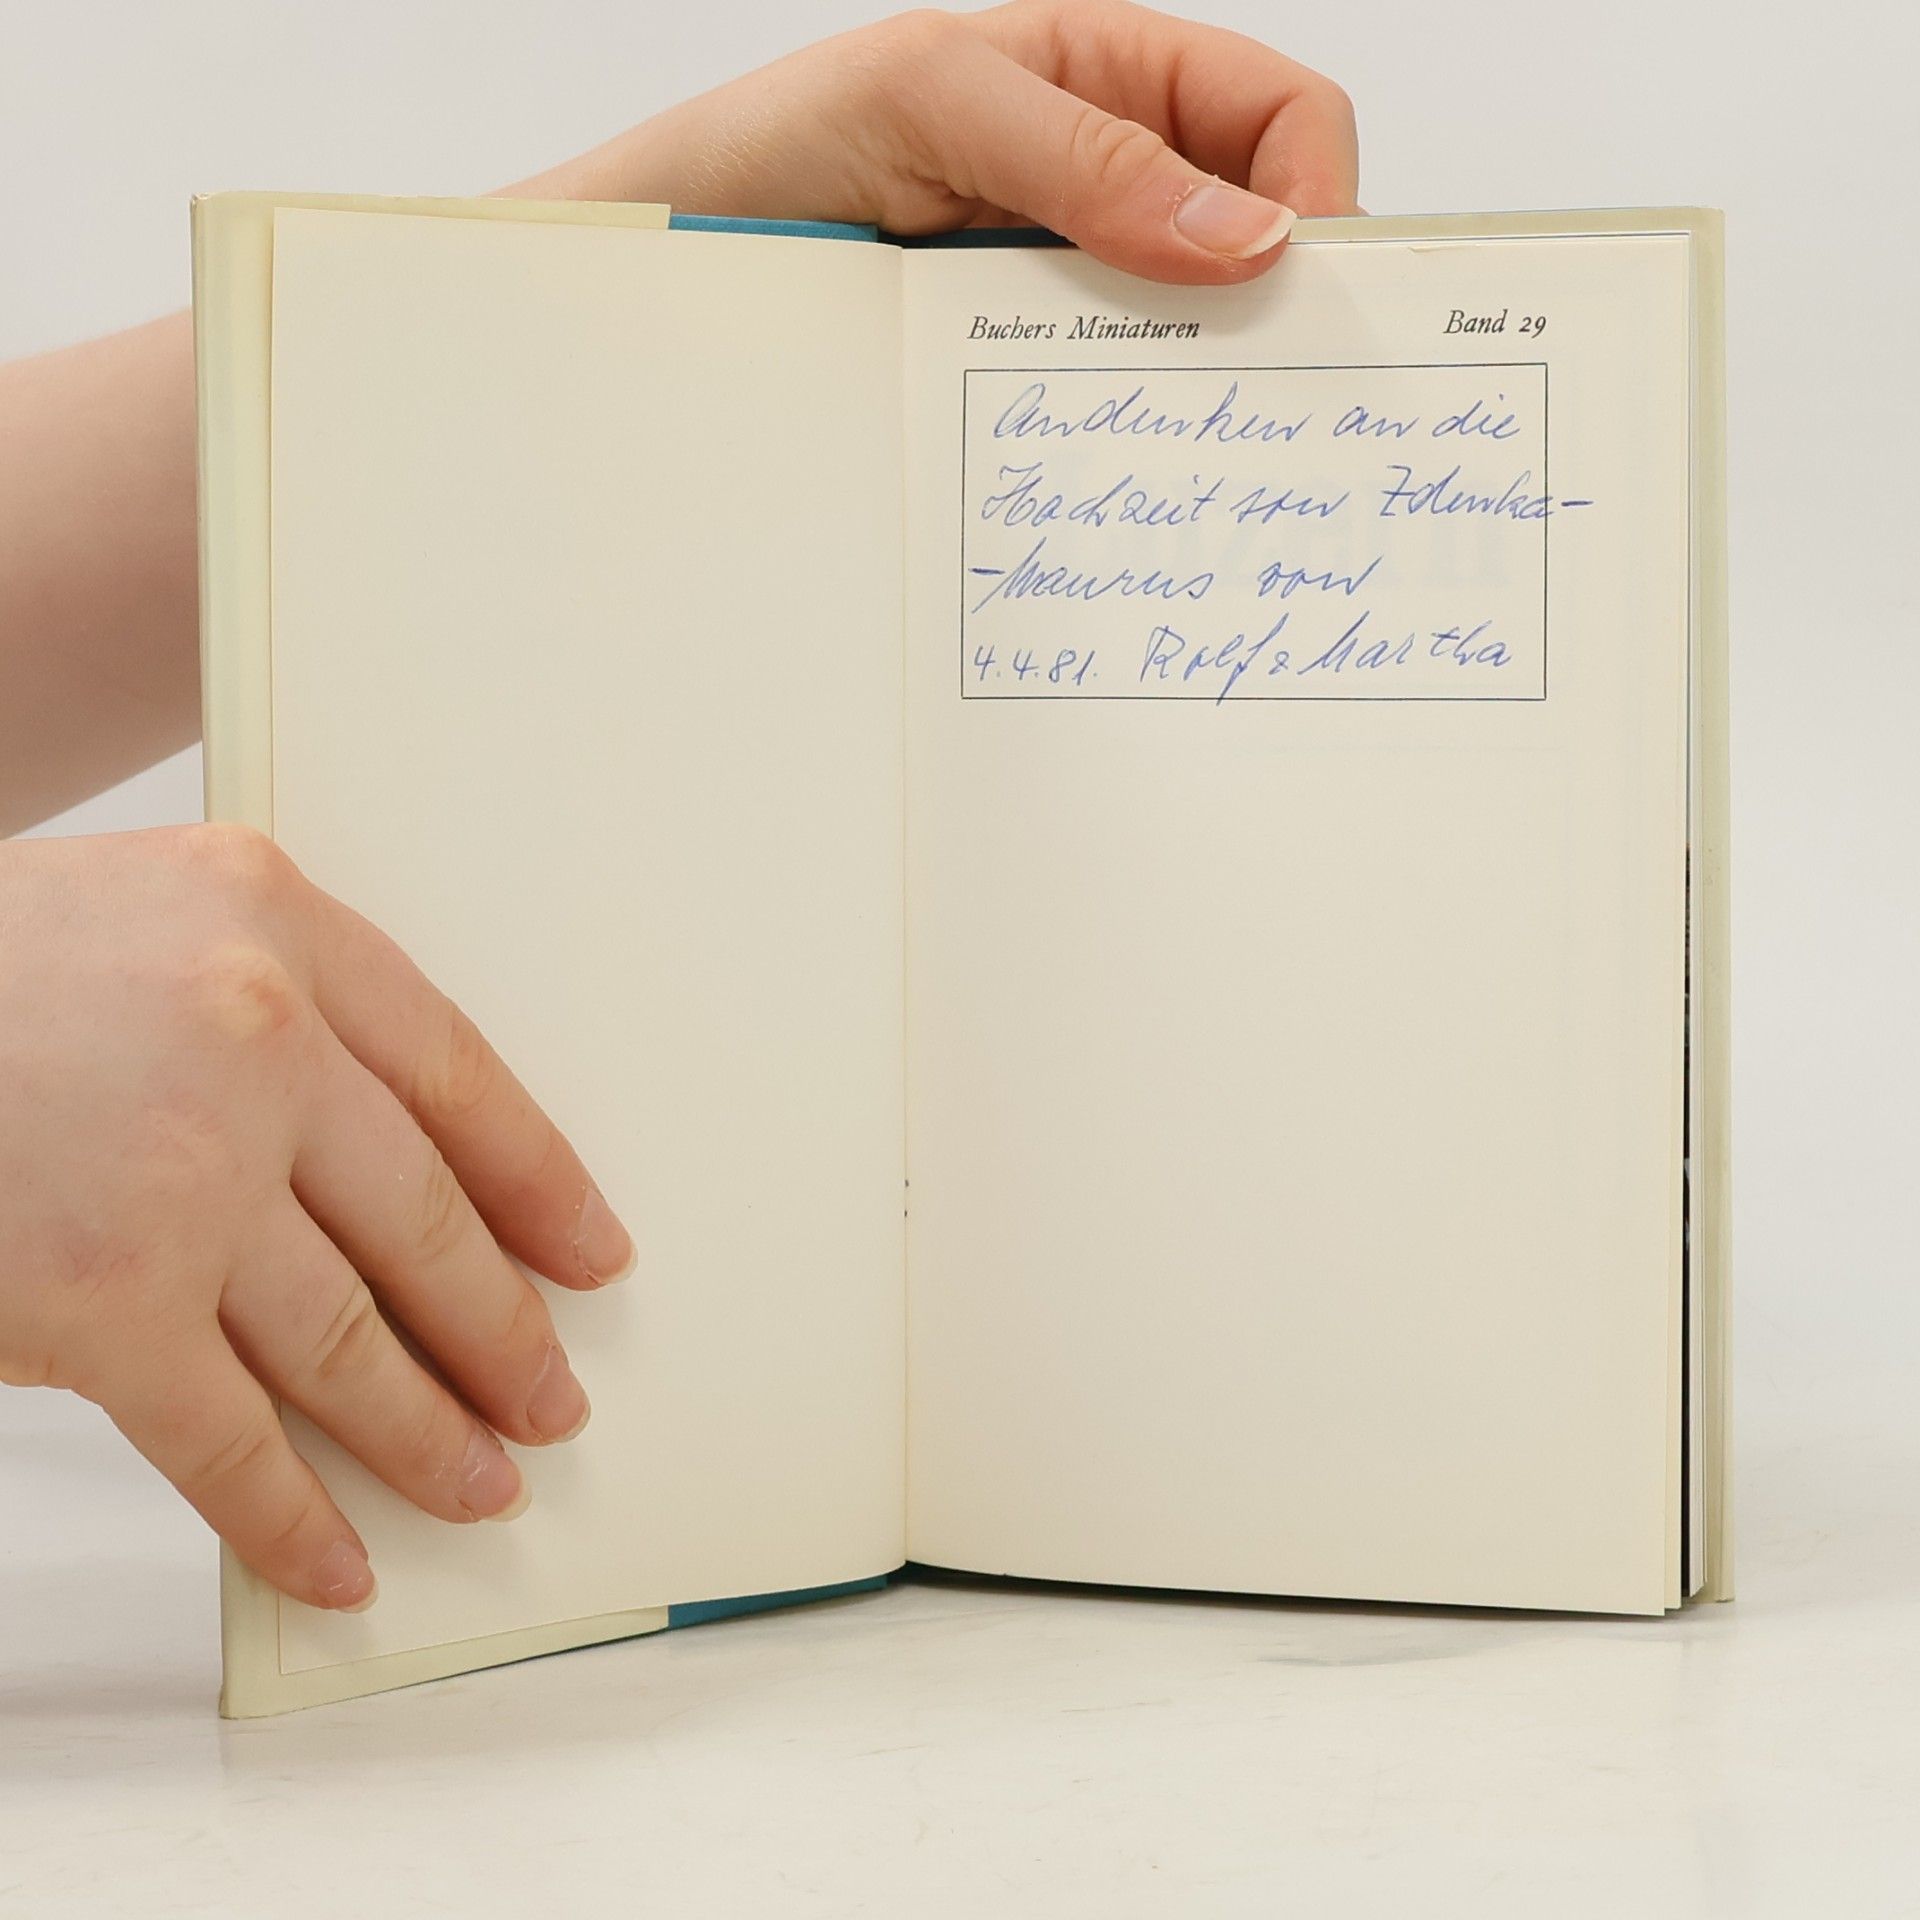 Buchers Miniaturen Band 29
Andenken an die
Hochzeit von Zdenka-
-Maurus von
4.4.81. Rolf & Martha